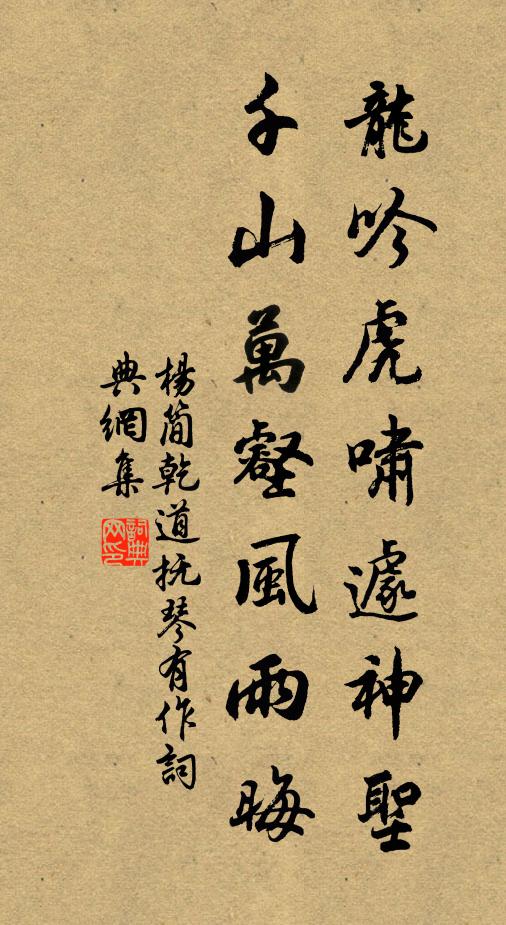 龍吟虎嘯遽神聖
千山萬壑風雨晦
楊簡乾道抚琴有作詞
典網集
詞典網印